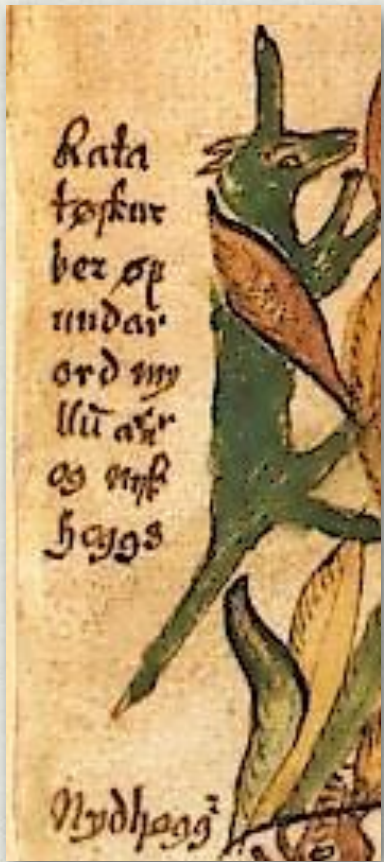 Rata
tøskur
ber øf
undar
ord my
llū arñ
og nyk
hoggs
Nydhøggᵣ